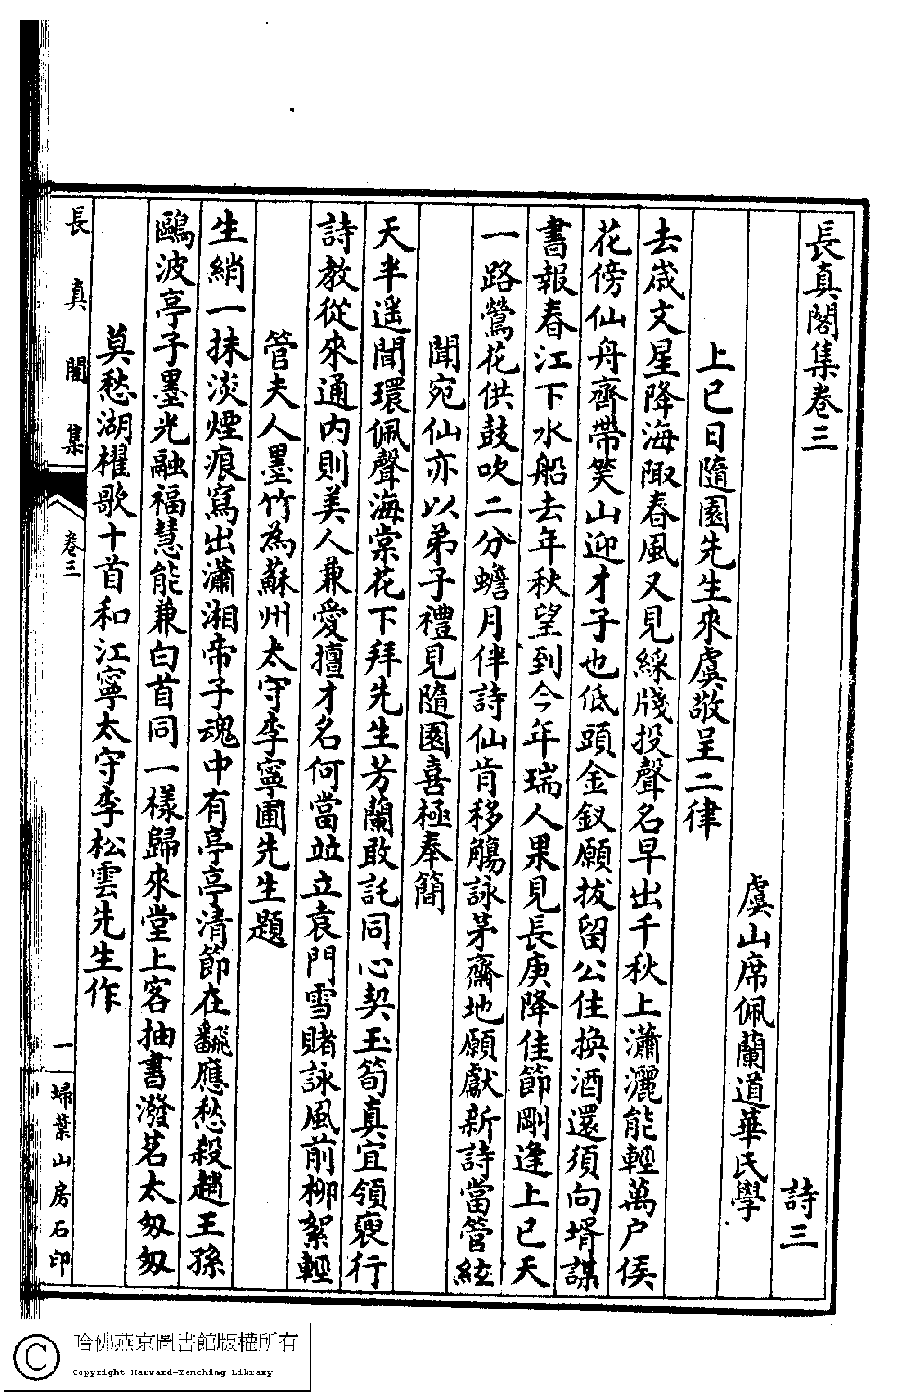 長真閣集卷三
詩三
虞山席佩蘭道華氏學
上巳日隨園先生來虞敬呈二律
去歲文星降海陬春風又見綵牋投聲名早出千秋上瀟灑能輕萬户侯
花傍仙舟齊帶笑山迎才子也低頭金釵願拔留公住換酒還須向壻謀
書報春江下水船去年秋望到今年瑞人果見長庚降佳節剛逢上巳天
一路鶯花供鼓吹二分蟾月伴詩仙肯移觴詠茅齋地願獻新詩當管絃
聞宛仙亦以弟子禮見隨園喜極奉簡
天半遥聞環佩聲海棠花下拜先生芳蘭敢託同心契玉筍真宜領袖行
詩教從來通內則美人兼愛擅才名何當竝立袁門雪賭詠風前柳絮輕
管夫人墨竹為蘇州太守李寧圃先生題
生綃一抹淡煙痕寫出瀟湘帝子魂中有亭亭清節在翻應愁殺趙王孫
鷗波亭子墨光融福慧能兼白首同一樣歸來堂上客抽書潑茗太匆匆
莫愁湖櫂歌十首和江寧太守李松雲先生作
長真閣集
卷三
一
埽葉山房石印
哈佛燕京圖書館版權所有
Copyright Harvard-Yenching Library